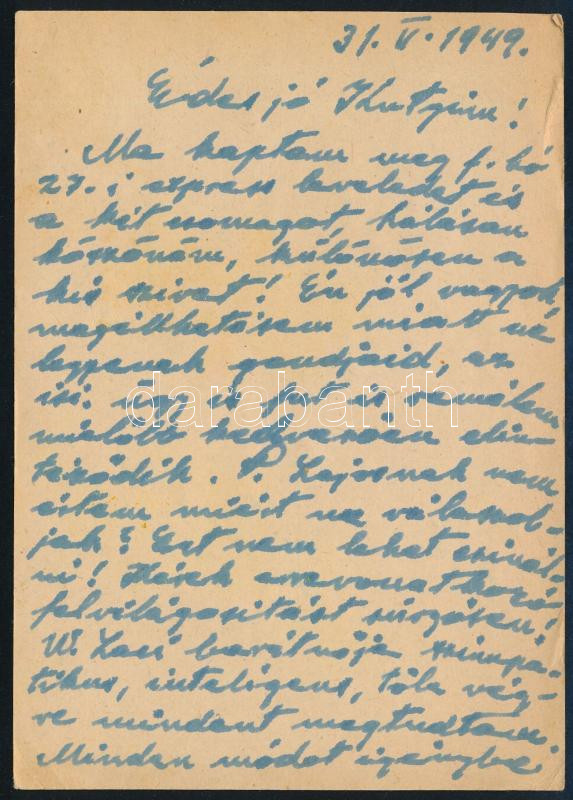 31. V. 1949.
Édes jó Kutyim!
Ma kaptam meg f. hó
27.-i express leveledet és
a két csomagot, hálásan
köszönöm, különösen a
kis szivet! Én jól vagyok
megélhetésem miatt ne
legyenek gondjaid, az
is! ugy is, remélem
mielőbb kedvezően elin-
téződik. P. Lajosnak nem
értem miért ne válaszol-
jak? Ezt nem lehet csinál-
ni! Kérek erre vonatkozó
felvilágositást sürgősen!
W. Laci barátnője szimpa-
tikus, inteligens, tőle vég-
re mindent megtudtam.
Minden módot igénybe
darabanth